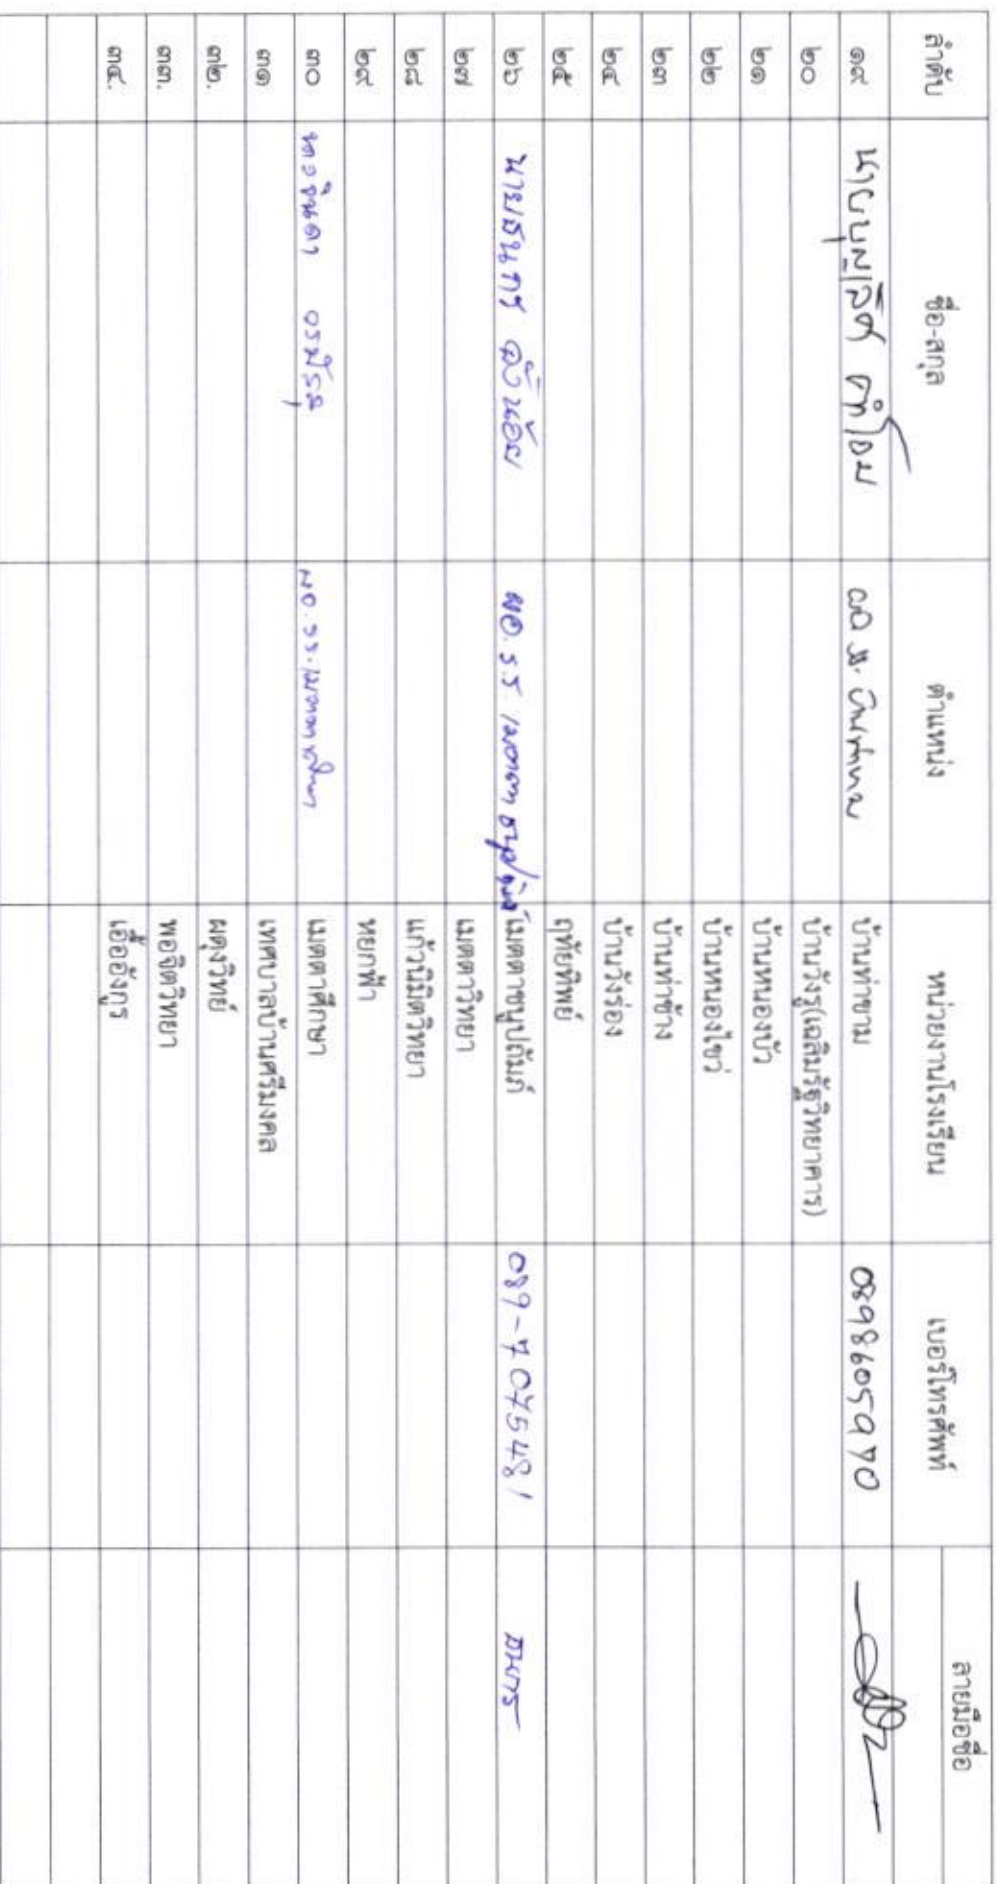 ลำดับ ชื่อ-สกุล ตำแหน่ง หน่วยงานโรงเรียน เบอร์โทรศัพท์ ลายมือชื่อ
๑๙ นายบุญเลิศ บ้านท่าขาม 0898605970
๒๐ บ้านวังรู(เฉลิมรัฐวิทยาคาร)
๒๑ บ้านหนองบัว
๒๒ บ้านหนองไขว่
๒๓ บ้านท่าช้าง
๒๔ บ้านวังร่อง
๒๕ ฤทัยทิพย์
๒๖ นายธนกร ผอ.รร เมตตาชนูปถัมภ์ 089-7075481 ธนกร
๒๗ เมตตาวิทยา
๒๘ แก้วนิมิตวิทยา
๒๙ หยกฟ้า
๓๐ ผอ.รร.เมตตาศึกษา เมตตาศึกษา
๓๑ เทศบาลบ้านศรีมงคล
๓๒. ผดุงวิทย์
๓๓. พอจิตวิทยา
๓๔. เอื้ออังกูร